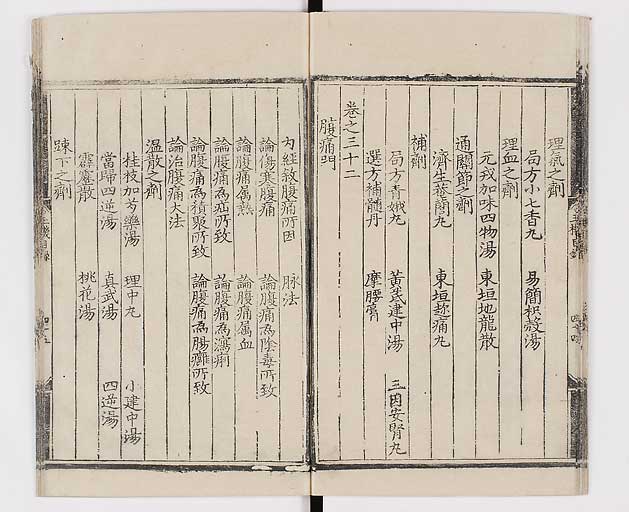 理氣之劑
局方小七香丸 易簡枳殼湯
理血之劑
元戎加味四物湯 東垣地龍散
通關節之劑
濟生蓯蓉丸 東垣趂痛丸
補劑
局方青娥丸 黃芪建中湯 三因安腎丸
選方補髓丹 摩腰膏
卷之三十二
腹痛門
內經敘腹痛所因 脉法
論傷寒腹痛 論腹痛為陰毒所致
論腹痛屬熱 論腹痛屬血
論腹痛為疝所致 論腹痛為瀉痢
論腹痛為積聚所致 論腹痛為腸癰所致
論治腹痛大法
溫散之劑
桂枝加芍藥湯 理中丸 小建中湯
當歸四逆湯 真武湯 四逆湯
霹靂散 桃花湯
踈下之劑